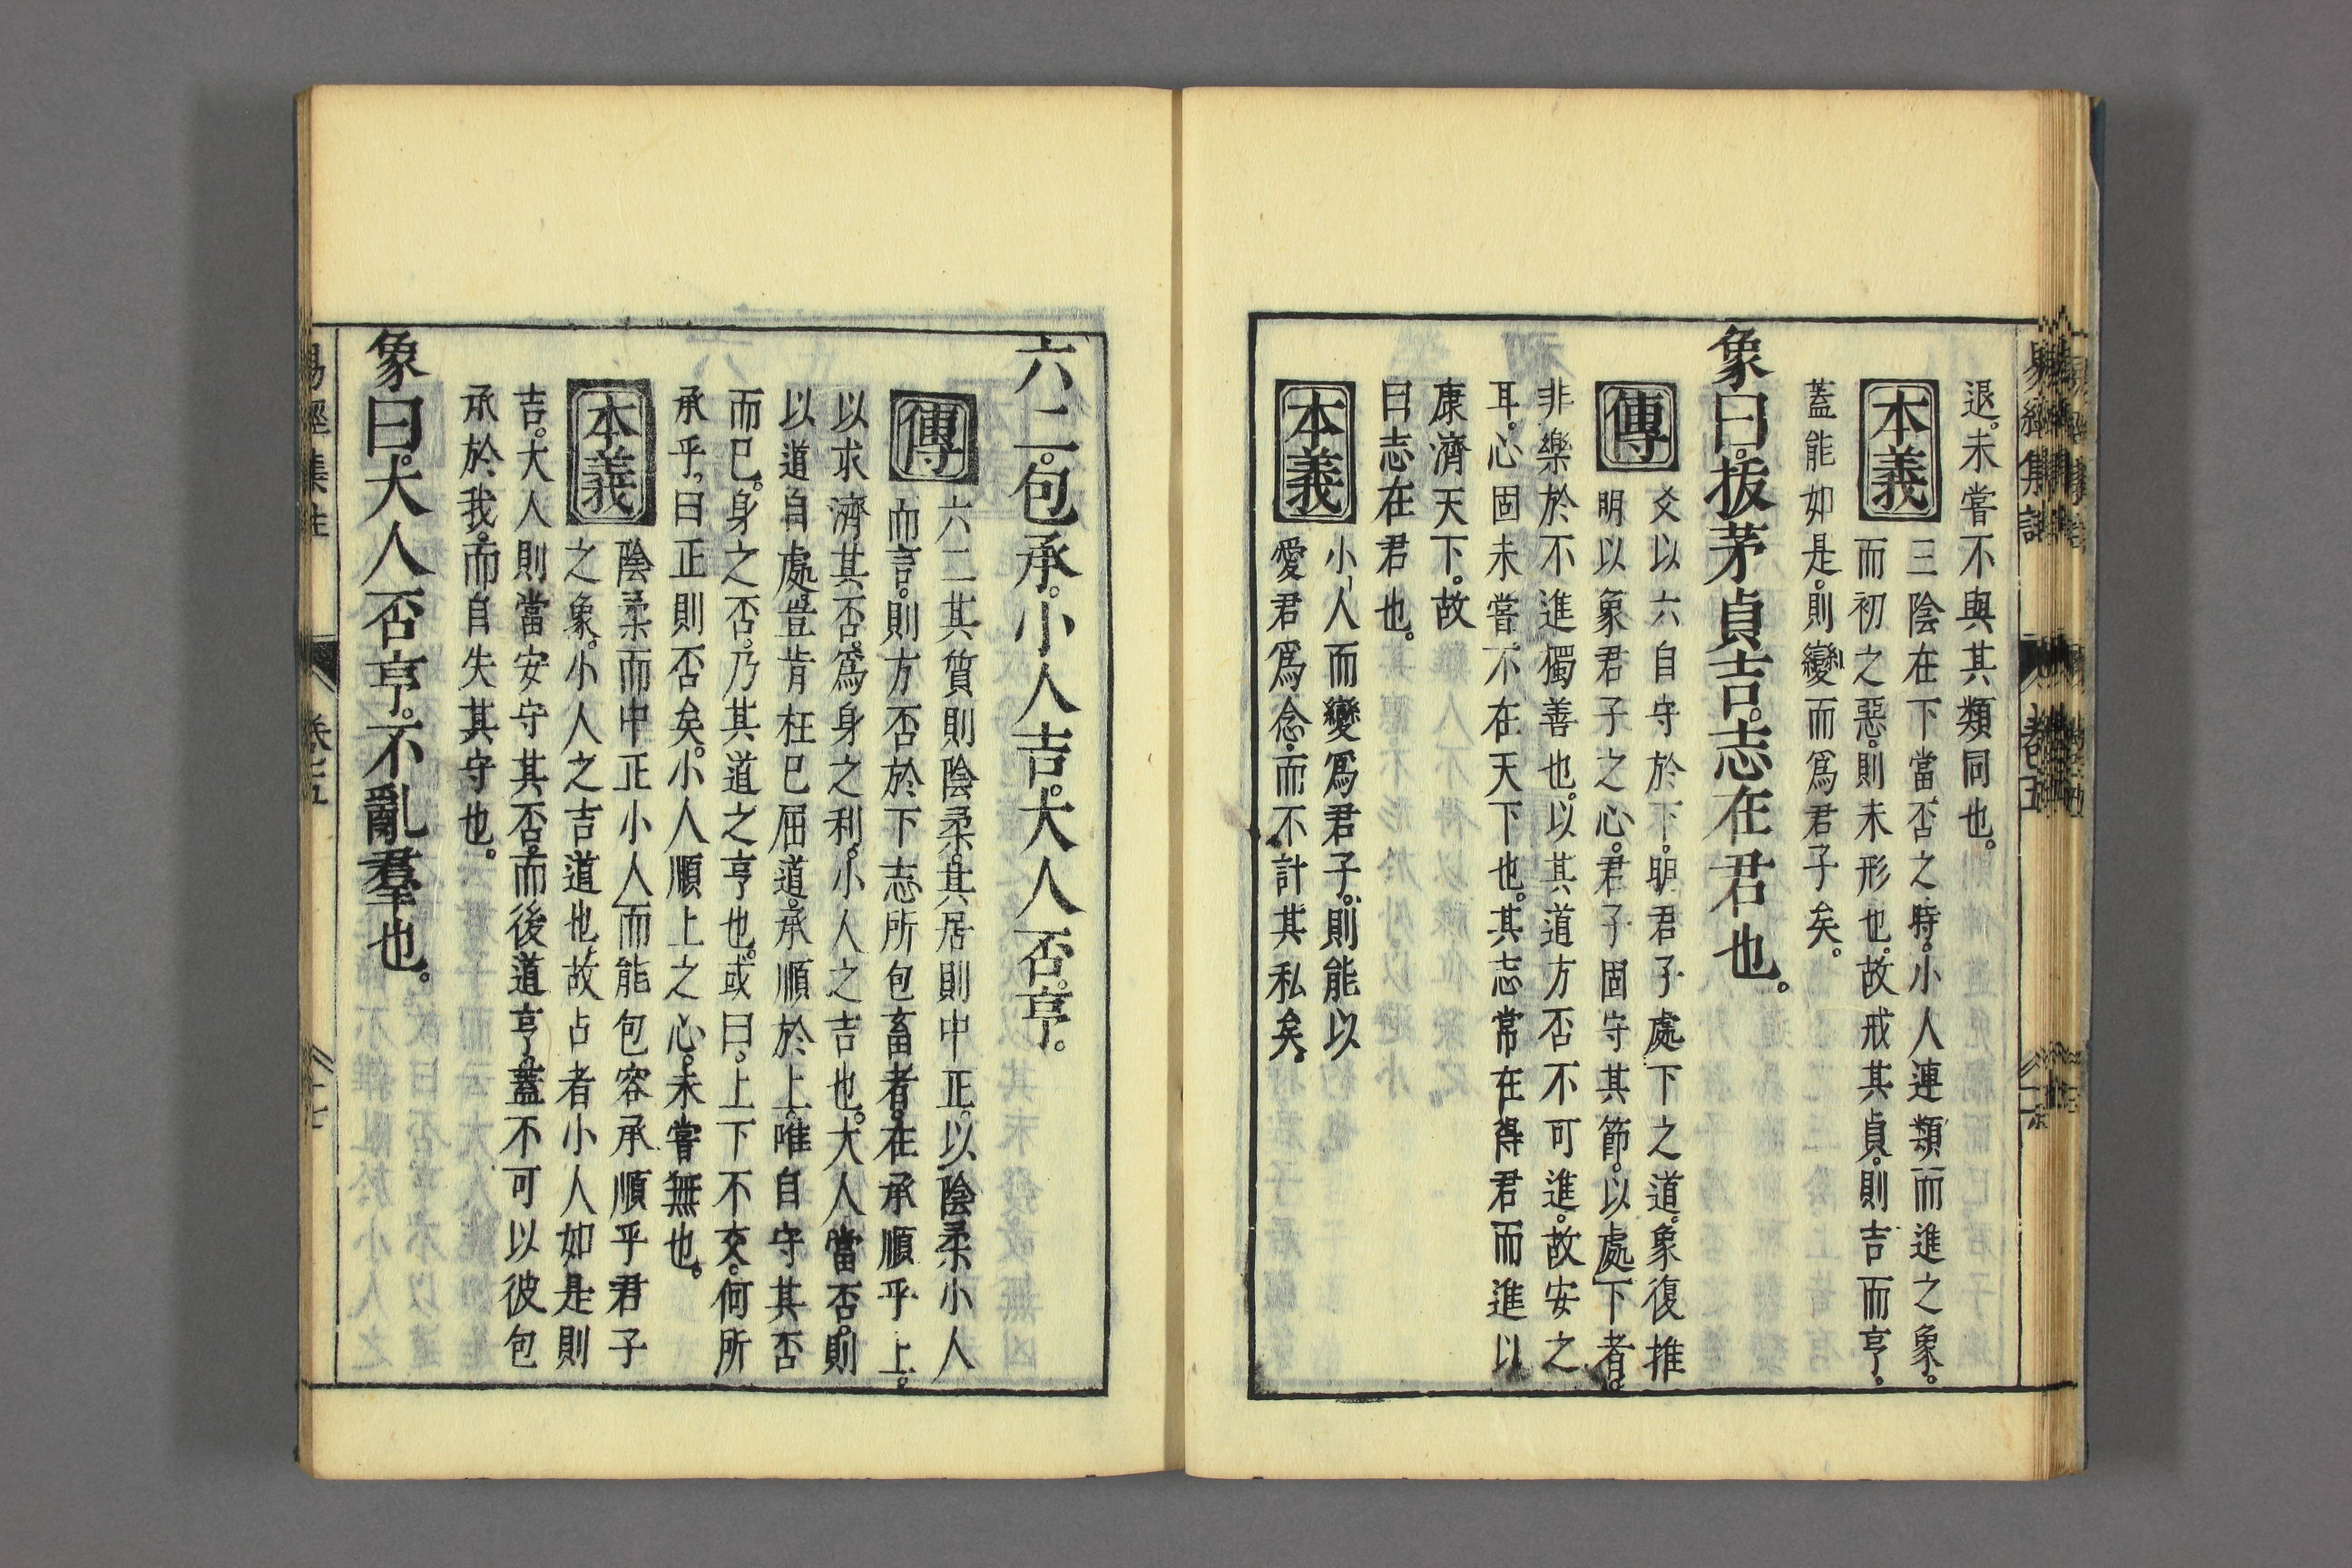 退。未嘗不與其類同也。
本義
三陰在下當否之時。小人連類而進之象。
而初之惡。則未形也。故戒其貞。則吉而亨。
蓋能如是。則變而爲君子矣。
象曰。拔茅貞吉。志在君也。
傳
爻以六自守於下。明君子處下之道。象復推
明以象君子之心。君子固守其節。以處下者。
非樂於不進獨善也。以其道方否不可進。故安之
耳。心固未嘗不在天下也。其志常在得君而進以
康濟天下。故
曰志在君也。
本義
小人而變爲君子。則能以
愛君爲念。而不計其私矣。
六二。包承。小人吉。大人否。亨。
傳
六二其質則陰柔。其居則中正。以陰柔小人
而言。則方否於下志所包畜者。在承順乎上。
以求濟其否。爲身之利。小人之吉也。大人當否。則
以道自處。豈肯枉已屈道。承順於上。唯自守其否
而已。身之否。乃其道之亨也。或曰。上下不交。何所
承乎。曰正則否矣。小人順上之心。未嘗無也。
本義
陰柔而中正小人而能包容承順乎君子
之象。小人之吉道也。故占者小人如是則
吉。大人則當安守其否。而後道亨。蓋不可以彼包
承於我。而自失其守也。
象曰。大人否亨。不亂羣也。
易經集註
卷五